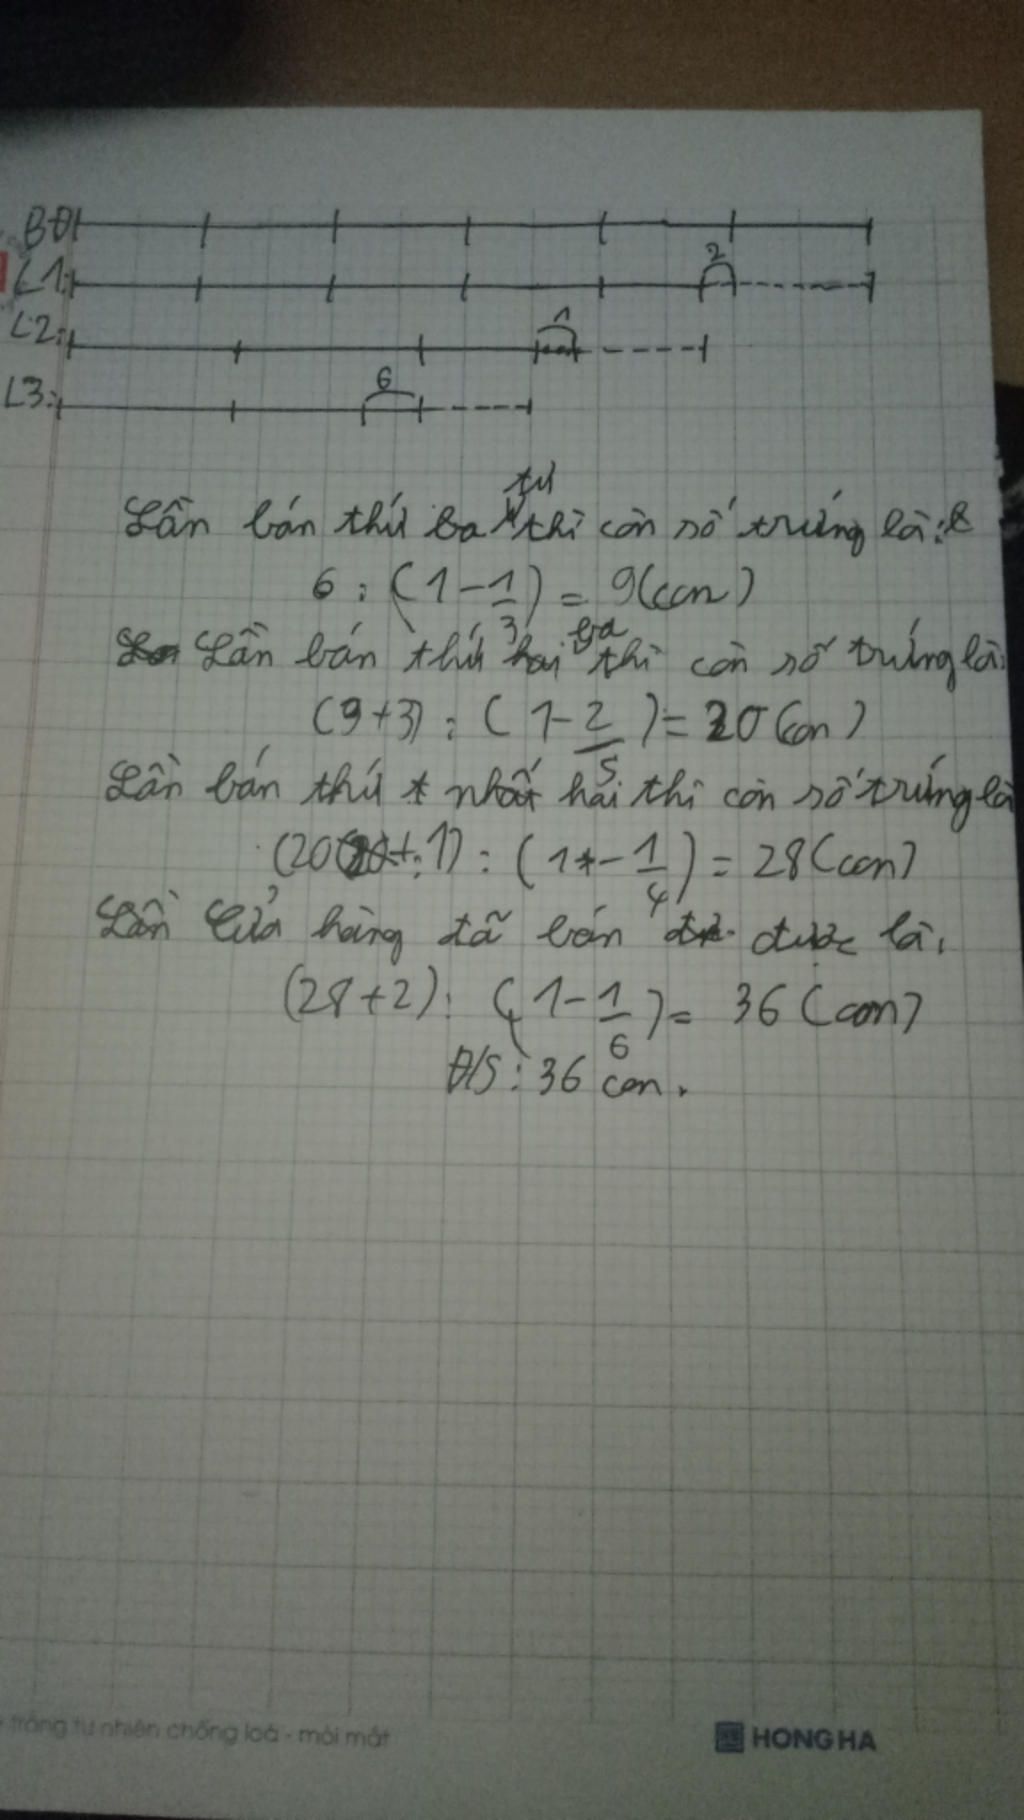 BĐ
L1:
2
L2:
1
L3:
6
tư
Lần bán thứ ba thì còn số trứng là:
6 : (1 - 1/3) = 9 (con)
ba
Lần bán thứ hai thì còn số trứng là:
(9+3) : (1 - 2/5) = 20 (con)
Lần bán thứ nhất hai thì còn số trứng là
(20 + 1) : (1 - 1/4) = 28 (con)
Lần cửa hàng đã bán được là:
(28+2) : (1 - 1/6) = 36 (con)
Đ/S: 36 con.
trắng tự nhiên chống loá - mỏi mắt
HONG HA